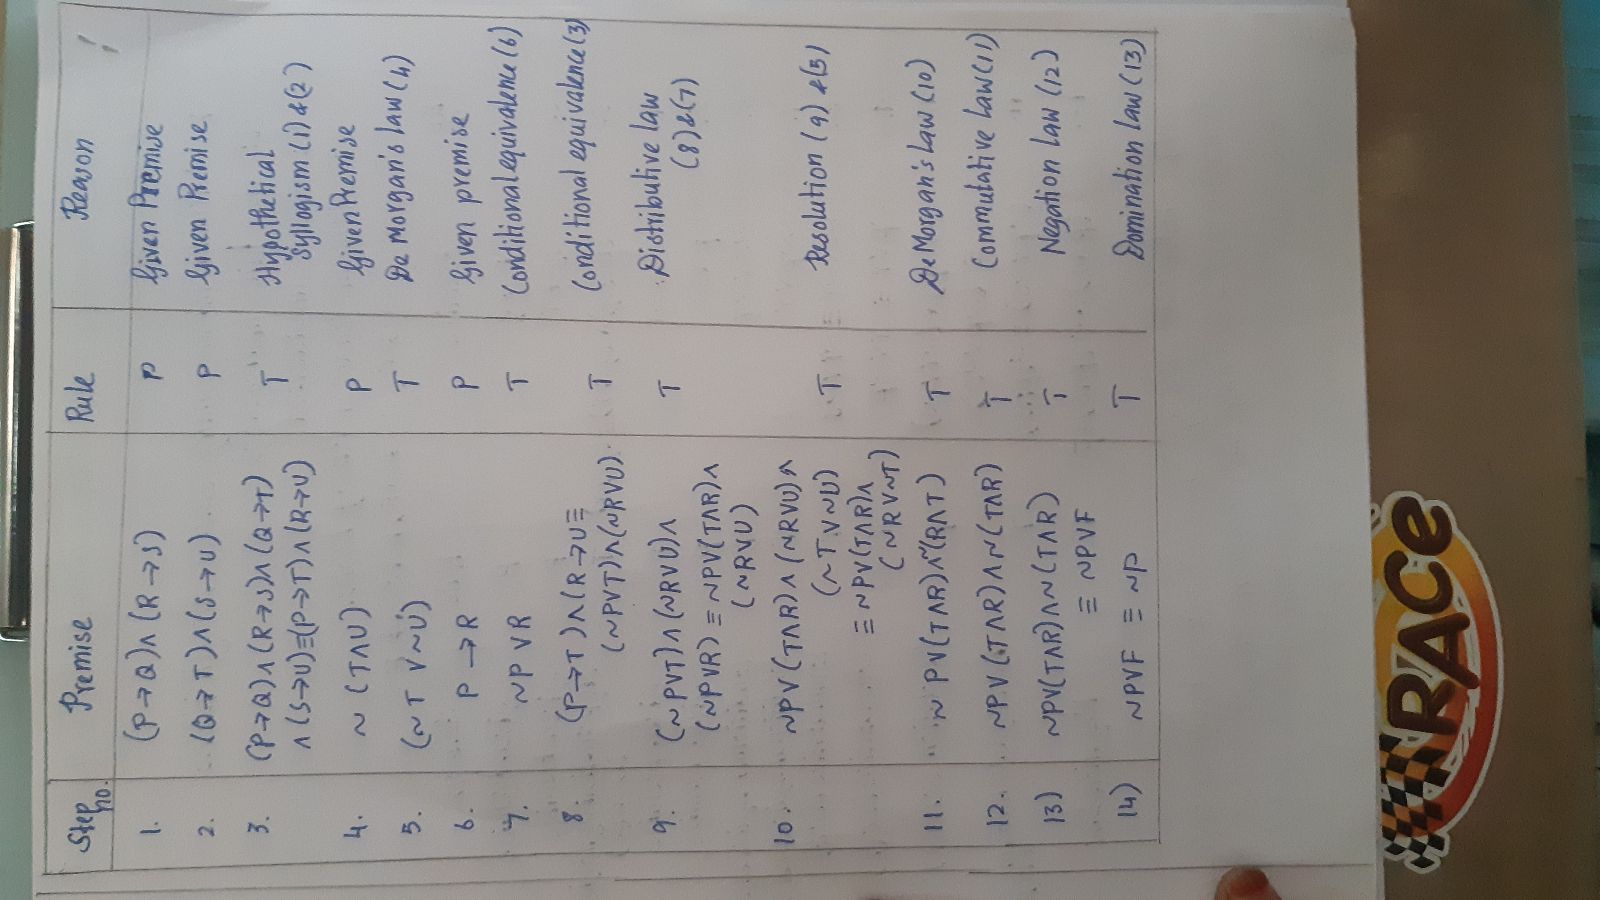 Step no. Premise Rule Reason
1. (P→Q)∧(R→S) P Given Premise
2. (Q→T)∧(S→U) P Given Premise
3. (P→Q)∧(R→S)∧(Q→T) T Hypothetical
∧(S→U)≡(P→T)∧(R→U) Syllogism (1)&(2)
4. ~(T∧U) P Given Premise
5. (~T∨~U) T De Morgan's law (4)
6. P→R P Given premise
7. ~P∨R T Conditional equivalence (6)
8. (P→T)∧(R→U≡ T Conditional equivalence (3)
(~P∨T)∧(~R∨U)
9. (~P∨T)∧(~R∨U)∧ T Distributive law
(~P∨R)≡~P∨(T∧R)∧ (8)&(7)
(~R∨U)
10. ~P∨(T∧R)∧(~R∨U)∧ T Resolution (9)&(5)
(~T∨~U)
≡~P∨(T∧R)∧
(~R∨~T)
11. ~P∨(T∧R)∧~(R∧T) T De Morgan's law (10)
12. ~P∨(T∧R)∧~(T∧R) T Commutative law (11)
13) ~P∨(T∧R)∧~(T∧R) T Negation law (12)
≡~P∨F
14) ~P∨F≡~P T Domination law (13)
RACe